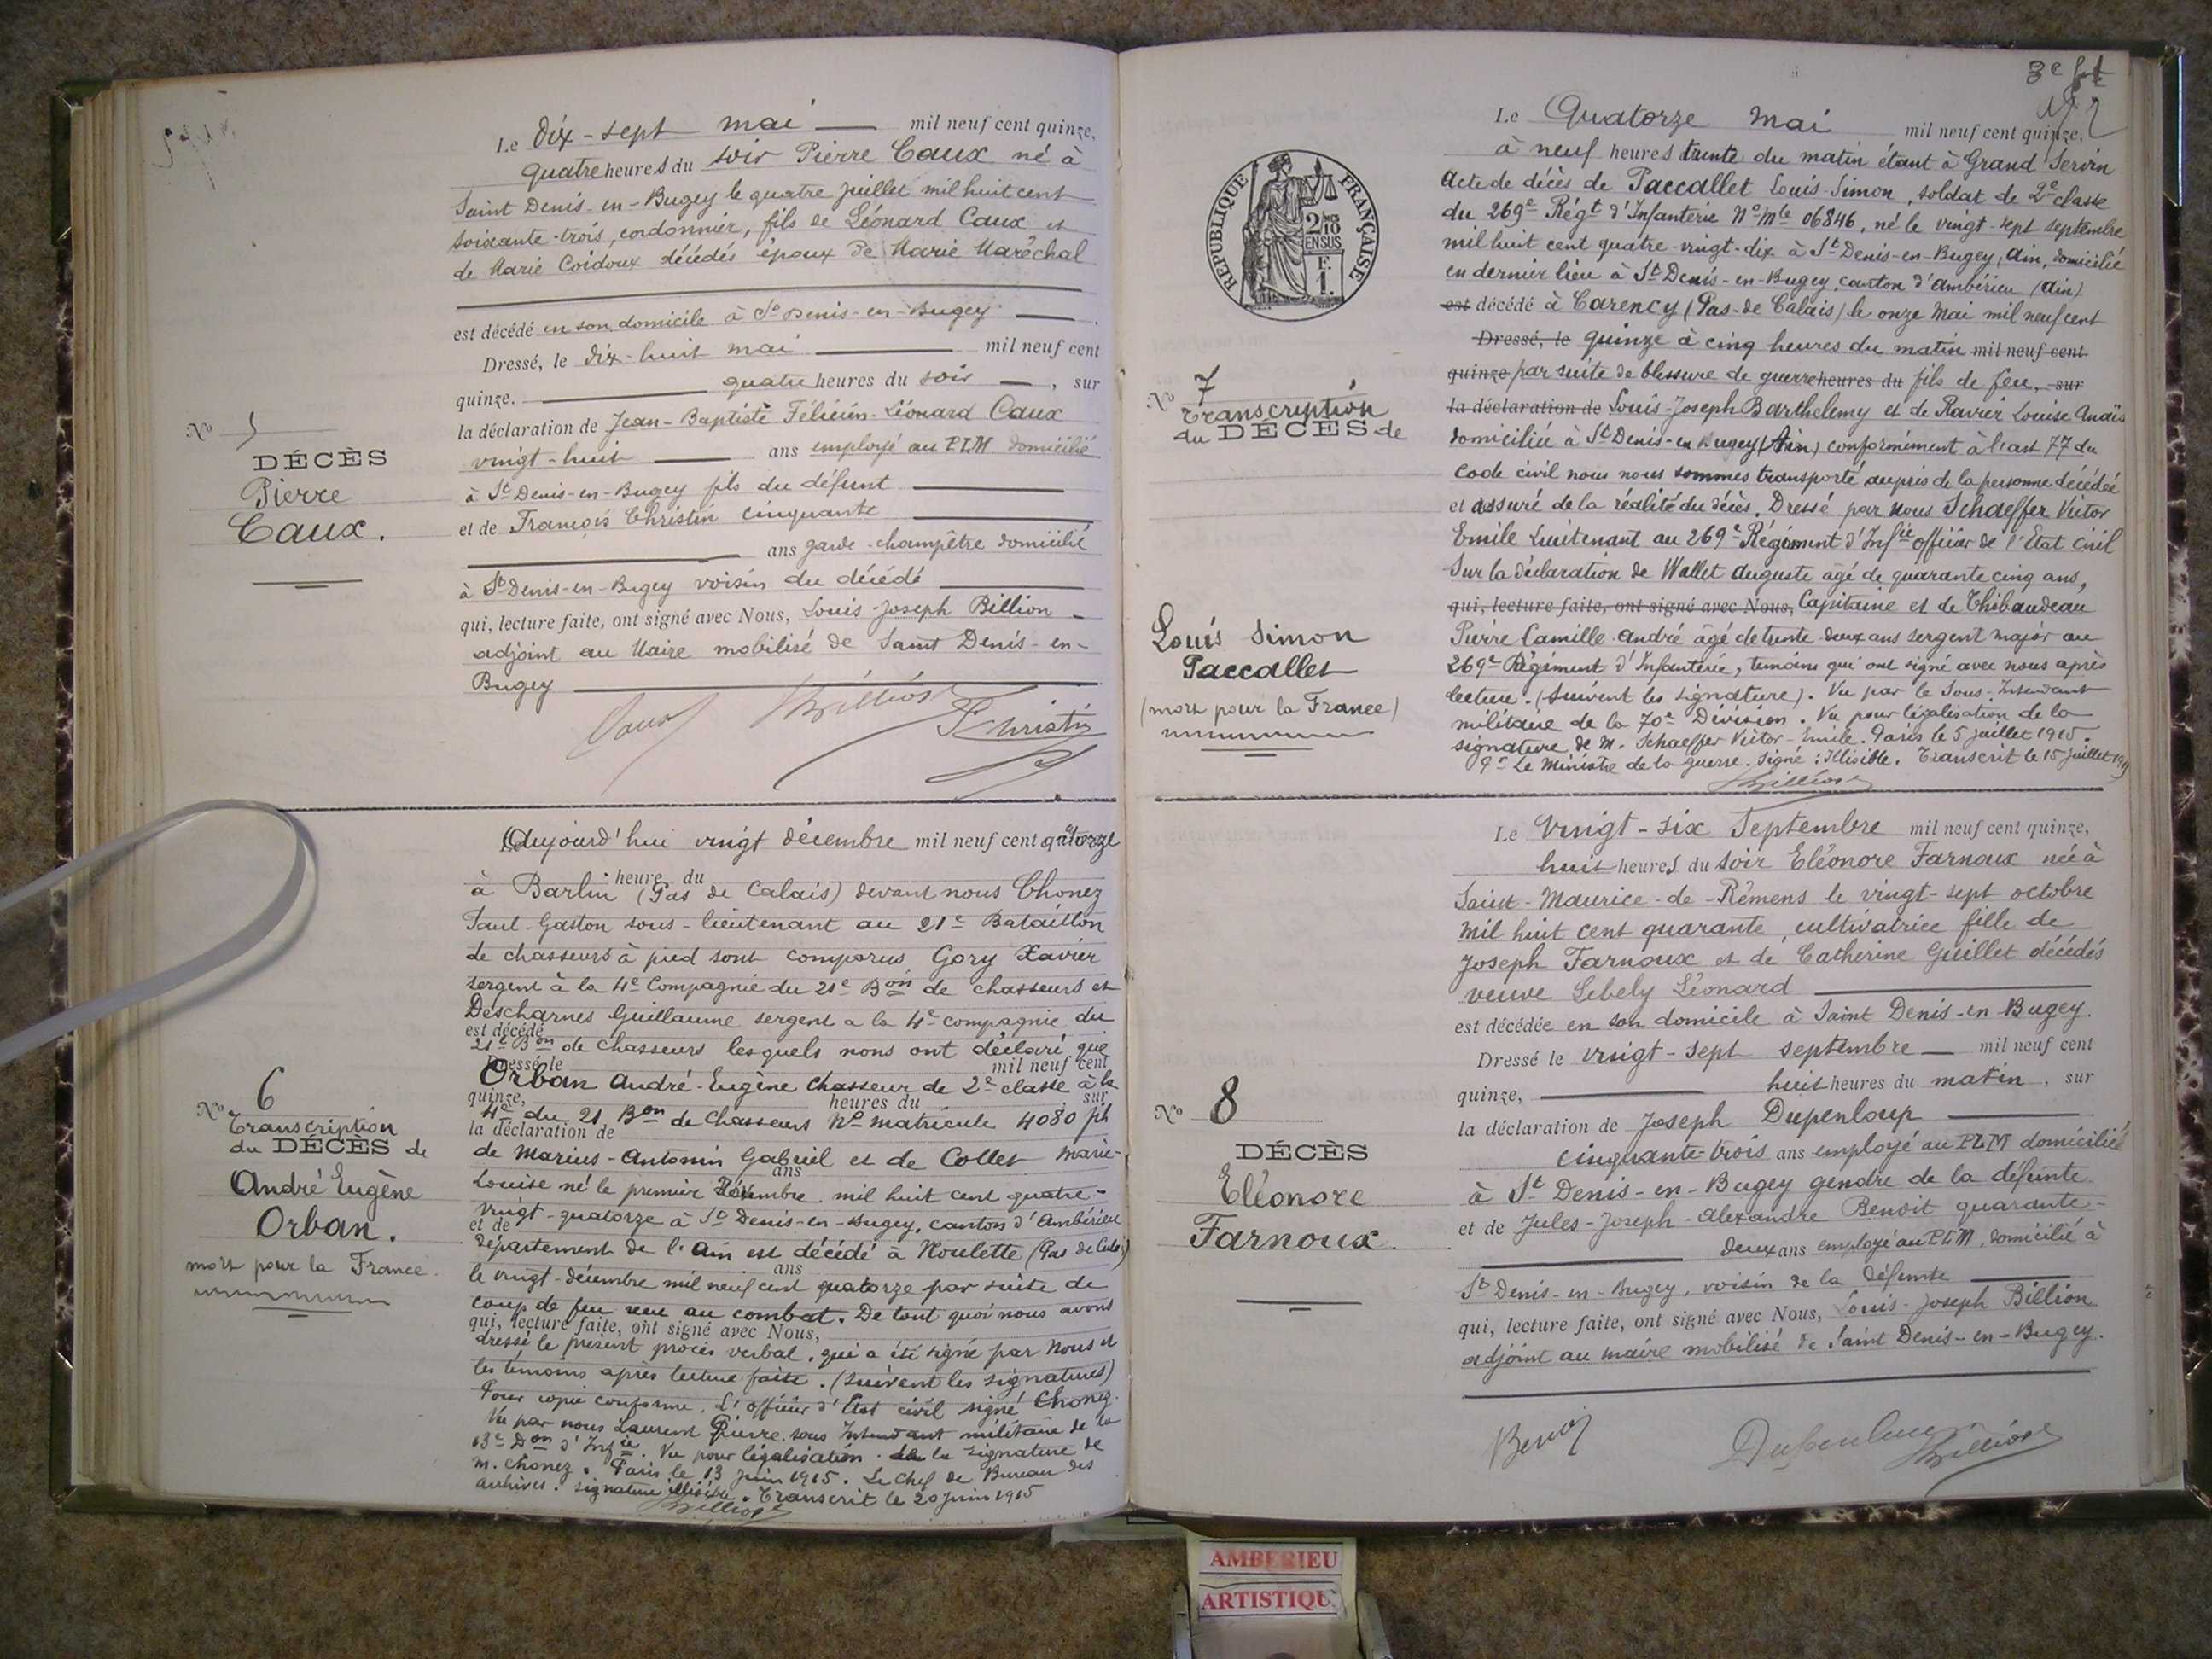 Le dix-sept mai mil neuf cent quinze,
quatre heures du soir Pierre Caux né à
Saint Denis-en-Bugey le quatre juillet mil huit cent
soixante-trois, cordonnier, fils de Léonard Caux et
de Marie Coidoux décédés époux de Marie Maréchal
est décédé en son domicile à St Denis-en-Bugey.
Dressé, le dix-huit mai mil neuf cent
quinze. quatre heures du soir, sur
la déclaration de Jean-Baptiste Félicien-Léonard Caux
vingt-huit ans employé au PLM domicilié
à St Denis-en-Bugey fils du défunt
et de François Christin cinquante
ans garde-champêtre domicilié
à St Denis-en-Bugey voisin du décédé
qui, lecture faite, ont signé avec Nous, Louis-Joseph Billion
adjoint au Maire mobilisé de Saint Denis-en-
Bugey
Caux Billion Christin
No 5
DÉCÈS
Pierre
Caux.
Aujourd'hui vingt décembre mil neuf cent quatorze
heure du
à Barlin (Pas de Calais) devant nous Chonez
Paul-Gaston sous-lieutenant au 21e Bataillon
de chasseurs à pied sont comparus Gory Xavier
sergent à la 4e Compagnie du 21e Bon de chasseurs et
Descharnes Guillaume sergent a la 4e compagnie du
est décédé
21e Bon de chasseurs lesquels nous ont déclaré que
Dressé le mil neuf cent
Orban André-Eugène chasseur de 2e classe à la
quinze, heures du sur
4e du 21 Bon de Chasseurs No matricule 4080 fils
la déclaration de
de Marius-Antonin Gabriel et de Collet Marie-
ans
Louise né le premier décembre mil huit cent quatre-
vingt-quatorze à St Denis-en-Bugey, canton d'Ambérieu
et de
département de l'Ain est décédé à Noulette (Pas de Calais)
ans
le vingt-décembre mil neuf cent quatorze par suite de
coup de feu reçu au combat. De tout quoi nous avons
qui, lecture faite, ont signé avec Nous,
dressé le présent procès verbal, qui a été signé par Nous et
les témoins après lecture faite. (suivent les signatures)
Pour copie conforme. L'officier d'Etat civil signé Chonez.
Vu par nous Laurent Pierre sous Intendant militaire de la
13e Don d'Infie. Vu pour légalisation de la signature de
M. Chonez. Paris le 13 Juin 1915. Le Chef de Bureau des
archives. signature illisible. Transcrit le 20 juin 1915
Billion
No 6
Transcription
du DÉCÈS de
André Eugène
Orban.
mort pour la France.
3e
REPUBLIQUE FRANÇAISE
2/10
EN SUS
F.
1.
Le Quatorze mai mil neuf cent quinze,
à neuf heures trente du matin étant à Grand Servin
Acte de décès de Paccallet Louis-Simon, soldat de 2e classe
du 269e Régt d'Infanterie No Mle 06846, né le vingt-sept septembre
mil huit cent quatre-vingt-dix à St Denis-en-Bugey, Ain, domicilié
en dernier lieu à St Denis-en-Bugey, canton d'Ambérieu (Ain)
est décédé à Carency (Pas-de Calais) le onze Mai mil neuf cent
Dressé, le quinze à cinq heures du matin mil neuf cent
quinze par suite de blessure de guerre heures du fils de feu, sur
la déclaration de Louis-Joseph Barthelemy et de Ravier Louise Anaïs
domiciliée à St Denis-en Bugey (Ain) conformément à l'art 77 du
code civil nous nous sommes transporté auprès de la personne décédée
et assuré de la réalité du décès. Dressé par nous Schaeffer Victor
Emile Lieutenant au 269e Régiment d'Infie officier de l'Etat civil
Sur la déclaration de Wallet Auguste âgé de quarante cinq ans,
qui, lecture faite, ont signé avec Nous, Capitaine et de Thibaudeau
Pierre Camille-André âgé de trente deux ans sergent major au
269e Régiment d'Infanterie, témoins qui ont signé avec nous après
lecture. (suivent les signature). Vu par le Sous-Intendant
militaire de la 70e Division. Vu pour légalisation de la
signature de M. Schaeffer Victor-Emile. Paris le 5 juillet 1915.
Pr Le Ministre de la guerre. Signé: Illisible. Transcrit le 15 juillet 1915
Billion
No 7
Transcription
du DÉCÈS de
Louis Simon
Paccallet
(mort pour la France)
Le Vingt-six Septembre mil neuf cent quinze,
huit heures du soir Eléonore Farnoux née à
Saint-Maurice-de-Rémens le vingt-sept octobre
mil huit cent quarante, cultivatrice fille de
Joseph Farnoux et de Catherine Guillet décédés
veuve Lebely Léonard
est décédée en son domicile à Saint Denis-en-Bugey.
Dressé le vingt-sept septembre mil neuf cent
quinze, huit heures du matin, sur
la déclaration de Joseph Dupenloup
cinquante-trois ans employé au PLM domicilié
à St Denis-en-Bugey gendre de la défunte
et de Jules-Joseph-Alexandre Benoit quarante-
deux ans employé au PLM, domicilié à
St Denis-en-Bugey, voisin de la défunte
qui, lecture faite, ont signé avec Nous, Louis-Joseph Billion
adjoint au maire mobilisé de Saint Denis-en-Bugey.
Benoit Dupenloup Billion
No 8
DÉCÈS
Eléonore
Farnoux.
AMBERIEU
ARTISTIQU